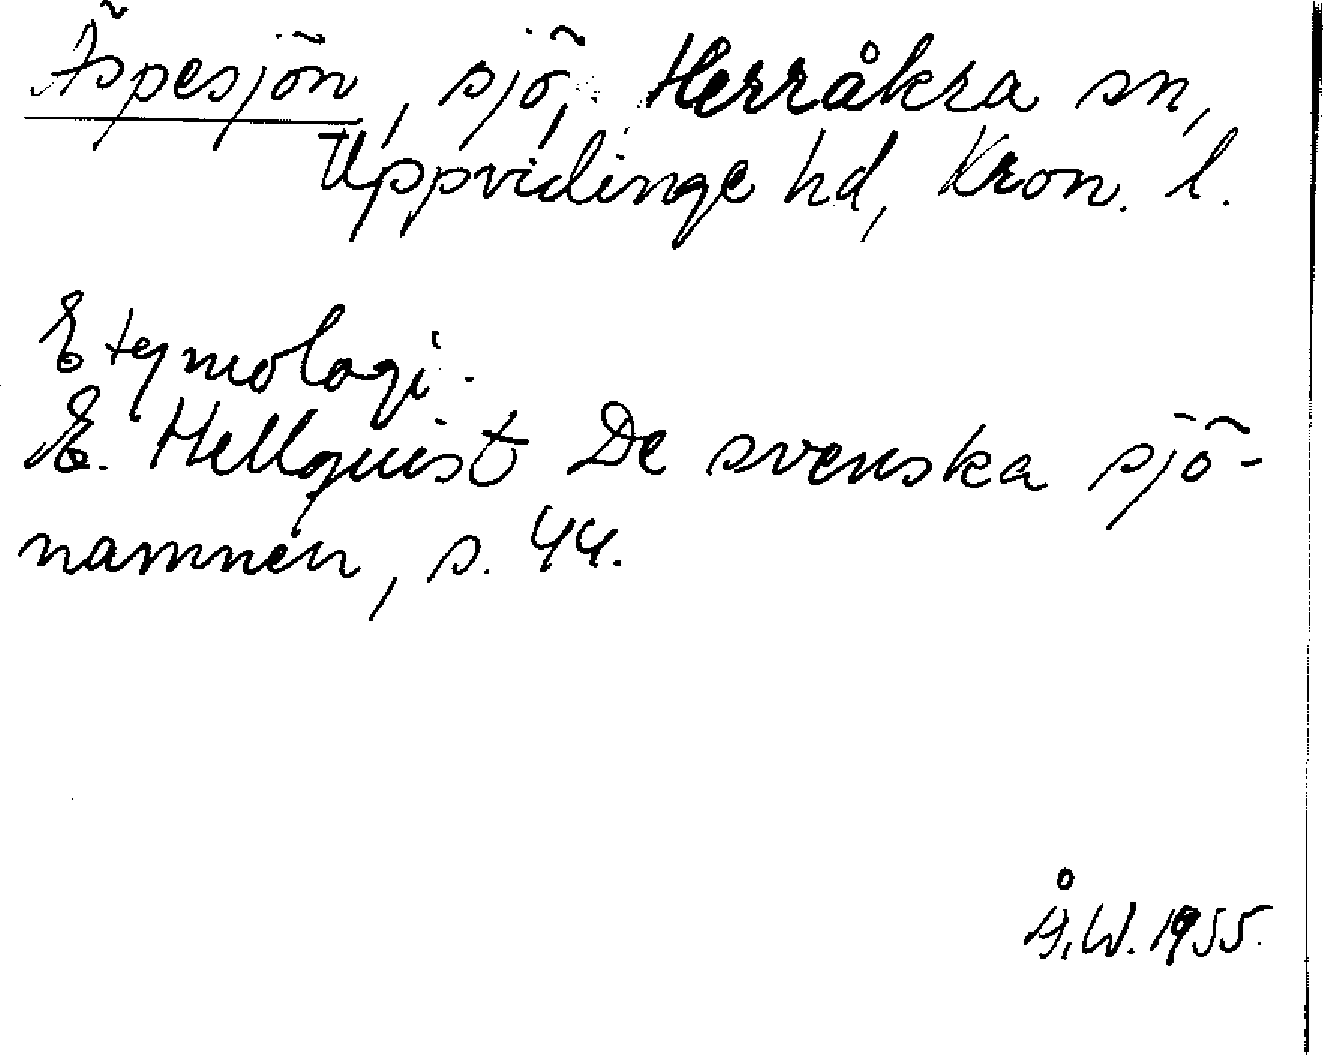 Äspesjön, sjö, Herråkra sn,
Uppvidinge hd, Kron. l.
Etymologi.
E. Hellquist De svenska sjö-
namnen, s. 44.
Å.W. 1955.